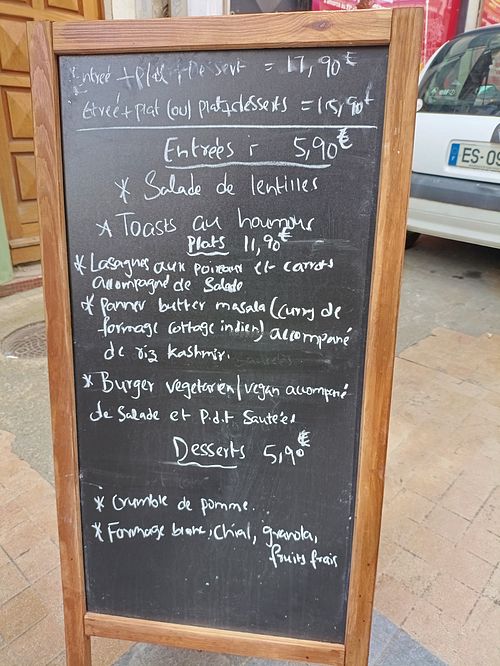 Entreé + plat + Dessert = 17,90€
Entreé + plat (ou) plat + desserts = 15,90€
Entrées : 5,90€
* Salade de lentilles
* Toasts au houmous
Plats 11,90€
* Lasagnes aux poireaux et carrots
accompagné de Salade
* panner butter masala (curry de
formage cottage indien) accompané
de riz kashmir.
* Burger vegetarien/vegan accompané
de Salade et P.d.t Sauteés
Desserts 5,90€
* Crumble de pomme.
* Formage blanc, Chial, granola,
fruits frais
ES-09